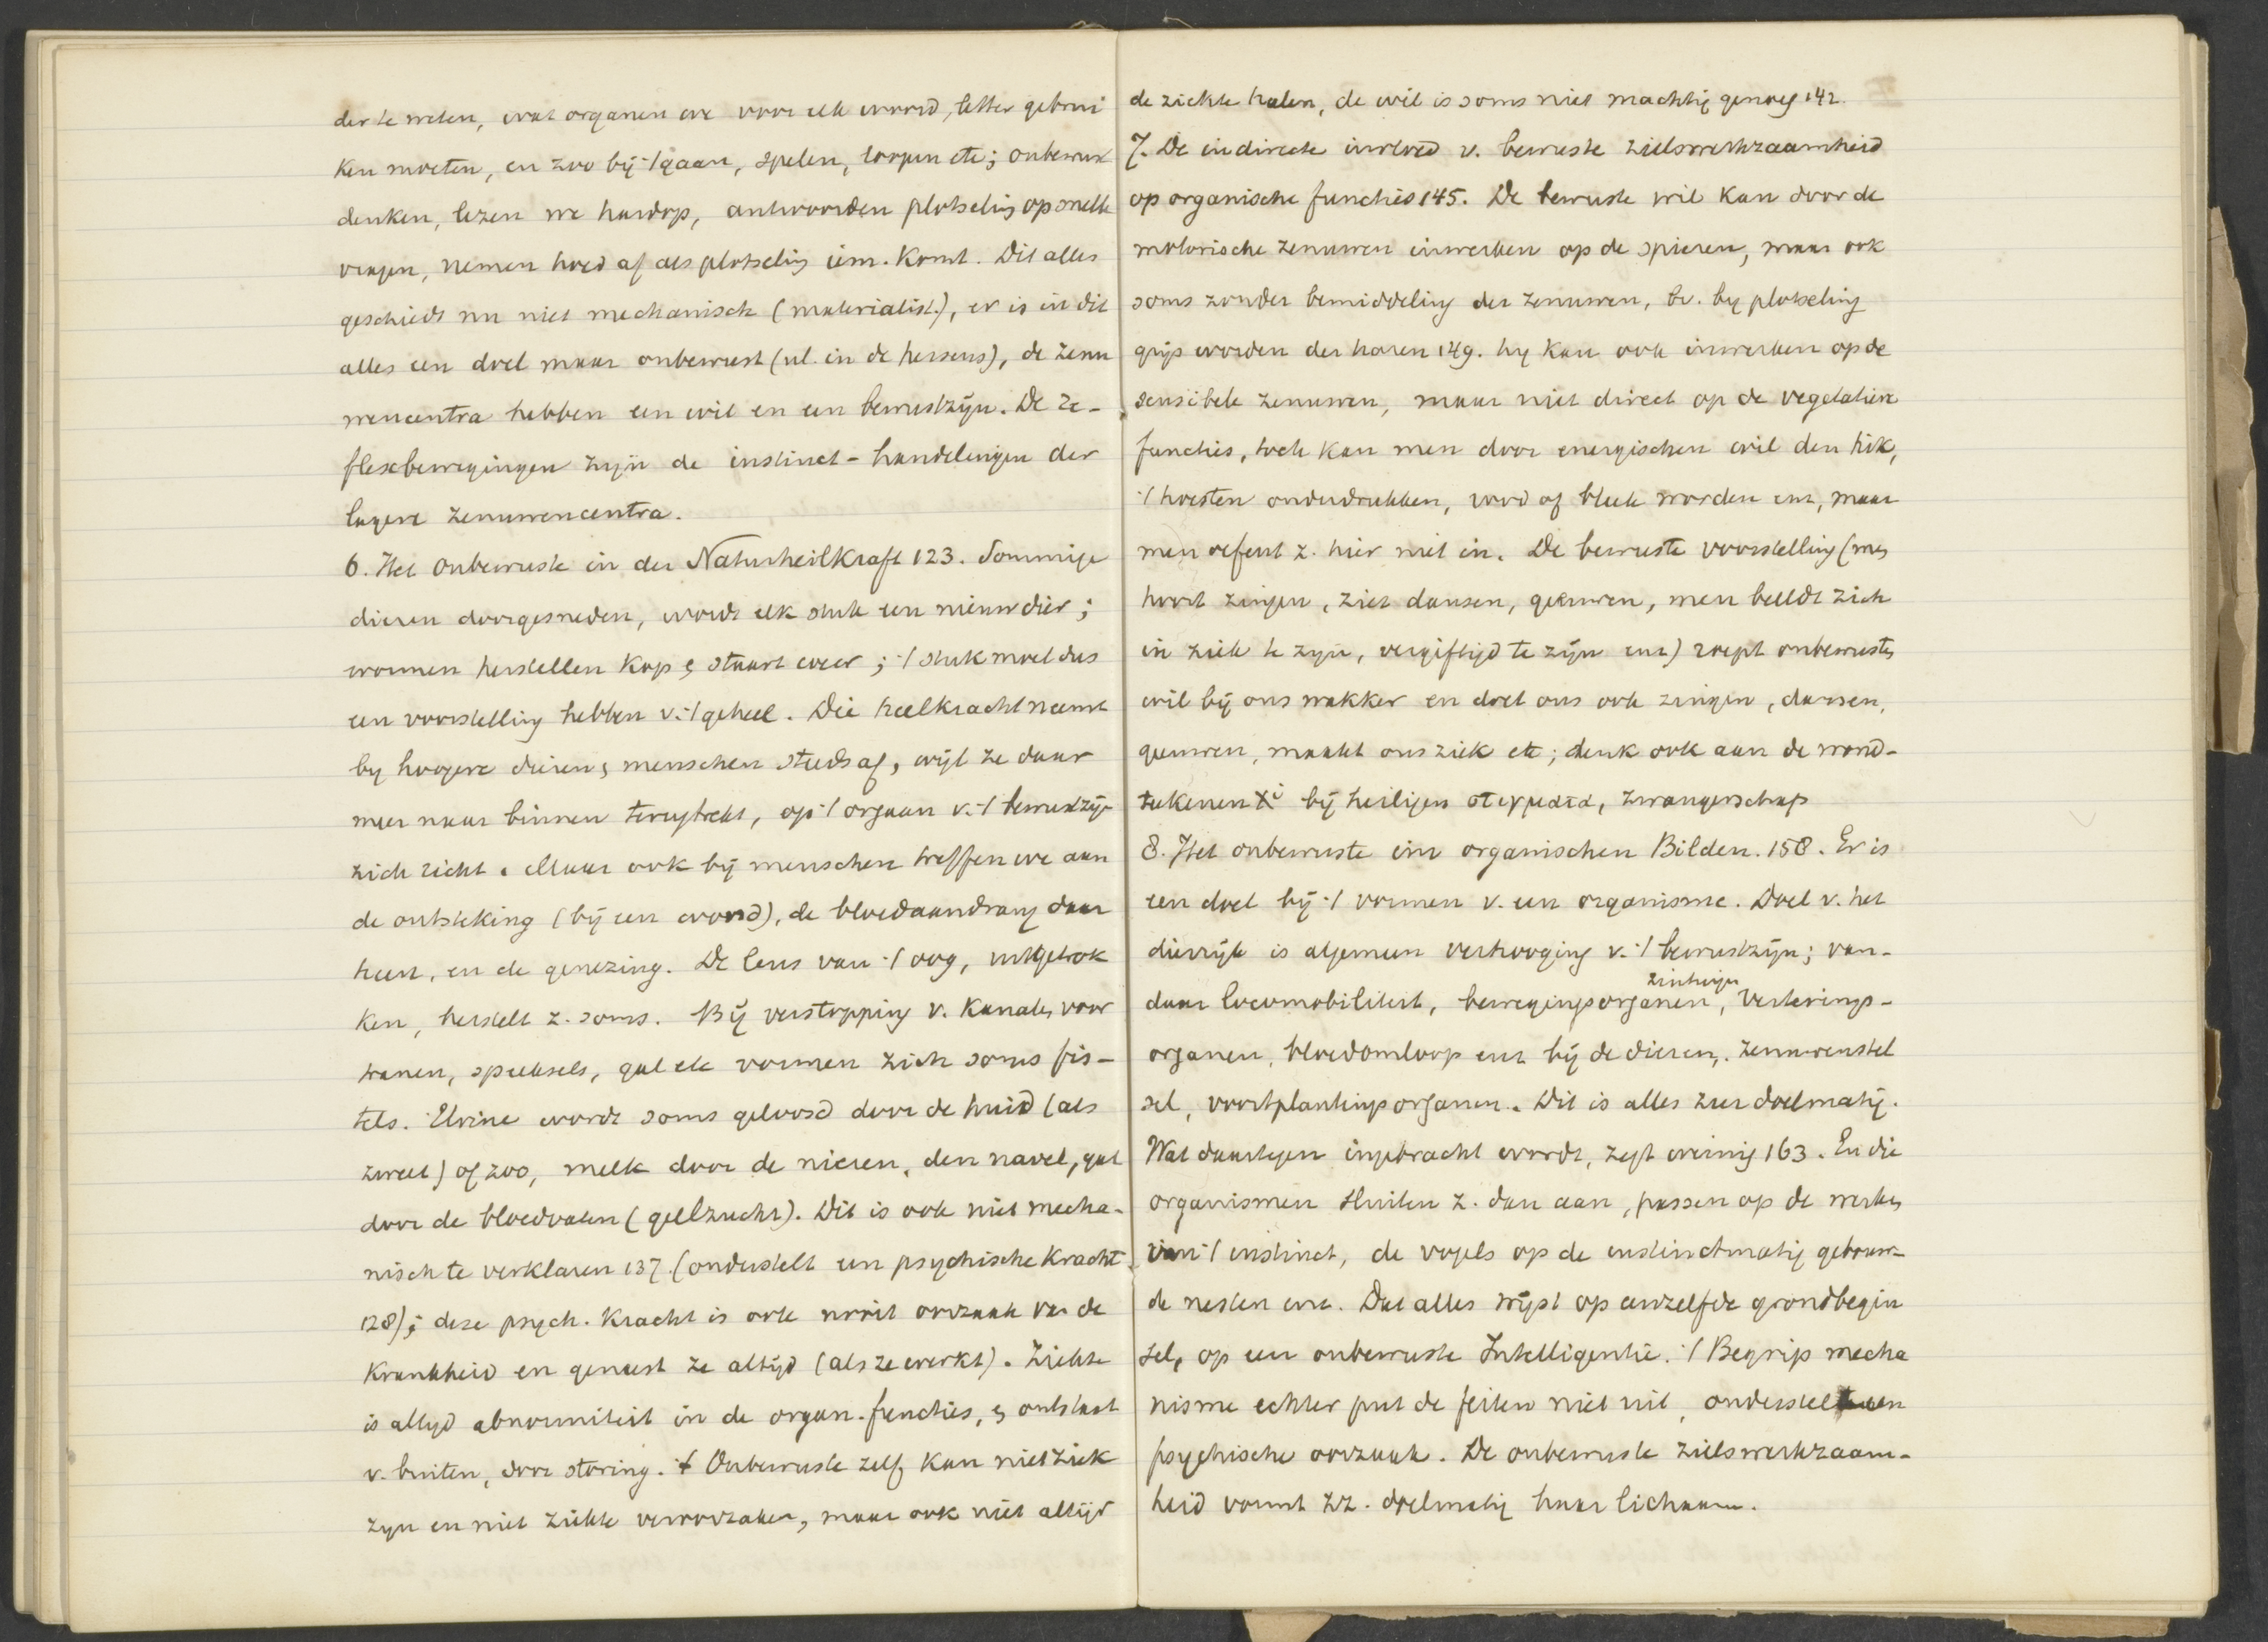 der te weten, wat organen we voor elk woord, letter gebrui
ken moeten, en zoo bij ’t gaan, spelen, loopen etc; onbewust
denken, lezen we hardop, antwoorden plotseling op snelle
vragen, nemen hoed af als plotseling iem. komt. Dit alles
geschiedt nu niet mechanisch (materialist.), er is in dit
alles een doel maar onbewust (nl. in de hersens), de zenu
wencentra hebben een wil en een bewustzijn. De re-
flexbewegingen zijn de instinct-handelingen der
lagere zenuwencentra.
6. Het onbewuste in der Naturheilkraft 123. Sommige
dieren doorgesneden, wordt elk stuk een nieuw dier;
wormen herstellen kop & staart weer; ’t stuk moet dus
een voorstelling hebben v. ’t geheel. Die heelkracht neemt
by hoogere dieren & menschen steeds af, wijl ze daar
meer naar binnen terugtrekt, op ’t orgaan v. ’t bewustzijn
zich richt. Maar ook bij menschen treffen we aan
de ontsteking (bij een wond), de bloedaandrang daar
heen, en de genezing. De lens van ’t oog, uitgetrok
ken, herstelt z. soms. Bij verstopping v. kanalen voor
tranen, speeksels, gal etc vormen zich soms fis-
tels. Urine wordt soms geloosd door de huid (als
zweet) of zoo, melk door de nieren, den navel, gal
door de bloedvaten (geelzucht). Dit is ook niet mecha-
nisch te verklaren 137 (onderstelt een psychische kracht
128); deze psych. kracht is ook nooit oorzaak van de
krankheid en geneest ze altijd (als ze werkt). Ziekte
is altyd abnormiteit in de organ. functies, & ontstaat
v. buiten, door storing. ’t Onbewuste zelf kan niet ziek
zyn en niet ziekte veroorzaken, maar ook niet altijd
de ziekte halen, de wil is soms niet machtig genoeg 142.
7. De indirecte invloed v. bewuste zielswerkzaamheid
op organische functies 145. De bewuste wil kan door de
motorische zenuwen inwerken op de spieren, maar ook
soms zonder bemiddeling der zenuwen, bv. by plotseling
grijs worden der haren 149. hy kan ook inwerken op de
sensibele zenuwen, maar niet direct op de vegetatieve
functies, toch kan men door energischen wil den hik,
’t hoesten onderdrukken, rood of bleek worden enz, maar
men oefent z. hier niet in. De bewuste voorstelling (men
hoort zingen, ziet dansen, geeuwen, men beeldt zich
in ziek te zyn, vergiftigd te zijn enz) roept onbewusten
wil bij ons wakker en doet ons ook zingen, dansen,
geeuwen, maakt ons ziek etc; denk ook aan de wond-
teekenen Xi bij heiligen στιγματα, zwangerschap
8. Het onbewuste im organischen Bilden. 158. Er is
een doel bij ’t vormen v. een organisme. Doel v. het
dierrijk is algemeen verhooging v. ’t bewustzijn; van-
daar locomobiliteit, bewegingsorganen, zintuigen, verterings-
organen, bloedomloop enz bij de dieren, zenuwenstel
sel, voortplantingsorganen. Dit is alles zeer doelmatig.
Wat daartegen ingebracht wordt, zegt weinig 163. En die
organismen sluiten z. dan aan, passen op de werken
van ’t instinct, de vogels op de instinctmatig gebouw-
de nesten enz. Dat alles wijst op eenzelfde grondbegin
sel, op een onbewuste Intelligentie. ’t Begrip mecha
nisme echter put de feiten niet uit, onderstelt een
psychische oorzaak. De onbewuste zielswerkzaam-
heid vormt zz. doelmatig haar lichaam.